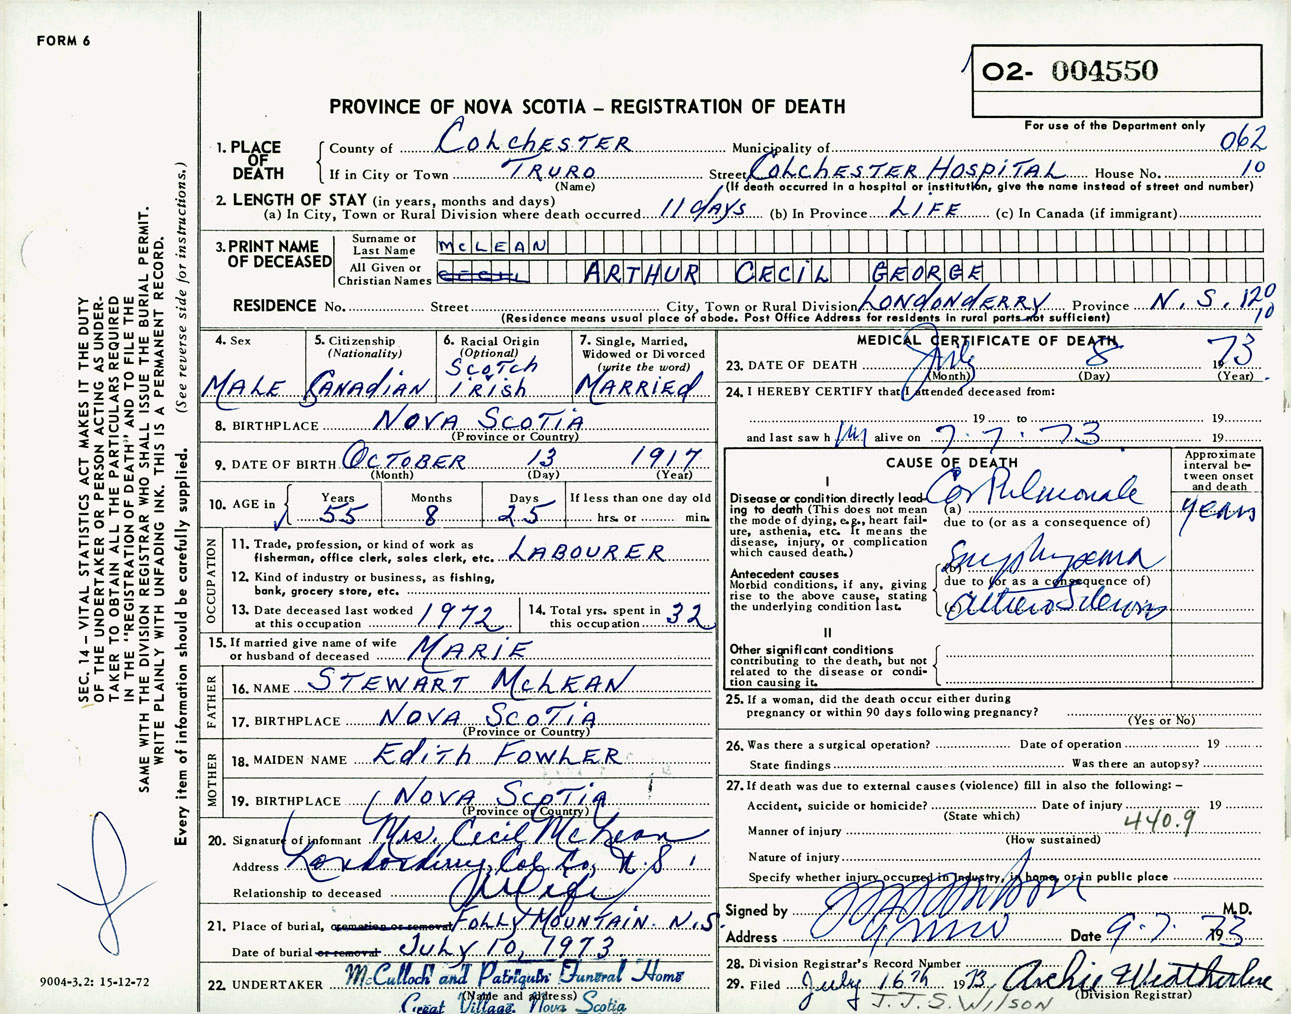 FORM 6
02- 004550
PROVINCE OF NOVA SCOTIA – REGISTRATION OF DEATH
For use of the Department only
062
10
1. PLACE OF DEATH
County of COLCHESTER Municipality of
If in City or Town TRURO Street COLCHESTER HOSPITAL House No.
(Name) (If death occurred in a hospital or institution, give the name instead of street and number)
2. LENGTH OF STAY (in years, months and days)
(a) In City, Town or Rural Division where death occurred 11 days (b) In Province LIFE (c) In Canada (if immigrant)
3. PRINT NAME OF DECEASED
Surname or Last Name McLEAN
All Given or Christian Names CECIL ARTHUR CECIL GEORGE
RESIDENCE No. Street City, Town or Rural Division LONDONDERRY Province N.S. 120
10
(Residence means usual place of abode. Post Office Address for residents in rural parts not sufficient)
4. Sex
MALE
5. Citizenship
(Nationality)
CANADIAN
6. Racial Origin
(Optional)
SCOTCH
IRISH
7. Single, Married,
Widowed or Divorced
(write the word)
MARRIED
8. BIRTHPLACE NOVA SCOTIA
(Province or Country)
9. DATE OF BIRTH OCTOBER 13 1917
(Month) (Day) (Year)
10. AGE in
Years Months Days If less than one day old
55 8 25 hrs. or min.
OCCUPATION
11. Trade, profession, or kind of work as
fisherman, office clerk, sales clerk, etc. LABOURER
12. Kind of industry or business, as fishing,
bank, grocery store, etc.
13. Date deceased last worked
at this occupation 1972
14. Total yrs. spent in
this occupation 32
15. If married give name of wife
or husband of deceased MARIE
FATHER
16. NAME STEWART McLEAN
17. BIRTHPLACE NOVA SCOTIA
(Province or Country)
MOTHER
18. MAIDEN NAME EDITH FOWLER
19. BIRTHPLACE NOVA SCOTIA
(Province or Country)
20. Signature of informant Mrs. Cecil McLean
Address Londonderry, Col. Co., N.S.
Relationship to deceased Wife
21. Place of burial, cremation or removal FOLLY MOUNTAIN. N.S.
Date of burial or removal JULY 10, 1973
22. UNDERTAKER McCulloch and Patriquin Funeral Home
(Name and address)
Great Village, Nova Scotia
MEDICAL CERTIFICATE OF DEATH
23. DATE OF DEATH July 8 1973
(Month) (Day) (Year)
24. I HEREBY CERTIFY that I attended deceased from:
19 to 19
and last saw him alive on 7.7.73 19
CAUSE OF DEATH
Approximate interval between onset and death
I
Disease or condition directly lead-
ing to death (This does not mean
the mode of dying, e.g., heart fail-
ure, asthenia, etc. It means the
disease, injury, or complication
which caused death.)
(a) Cor Pulmonale years
due to (or as a consequence of)
Antecedent causes
Morbid conditions, if any, giving
rise to the above cause, stating
the underlying condition last.
(b) Emphysema
due to (or as a consequence of)
(c) Arteriosclerosis
II
Other significant conditions
contributing to the death, but not
related to the disease or condi-
tion causing it.
25. If a woman, did the death occur either during
pregnancy or within 90 days following pregnancy?
(Yes or No)
26. Was there a surgical operation? Date of operation 19
State findings Was there an autopsy?
27. If death was due to external causes (violence) fill in also the following: –
Accident, suicide or homicide? Date of injury 19
(State which)
440.9
Manner of injury
(How sustained)
Nature of injury
Specify whether injury occurred in industry, in home, or in public place
Signed by M.D.
Address Truro Date 9.7.1973
28. Division Registrar's Record Number
29. Filed July 16th 1973 Archie Weatherbee
(Division Registrar)
J.J.S. WILSON
SEC. 14 – VITAL STATISTICS ACT MAKES IT THE DUTY
OF THE UNDERTAKER OR PERSON ACTING AS UNDER-
TAKER TO OBTAIN ALL THE PARTICULARS REQUIRED
IN THE "REGISTRATION OF DEATH" AND TO FILE THE
SAME WITH THE DIVISION REGISTRAR WHO SHALL ISSUE THE BURIAL PERMIT.
WRITE PLAINLY WITH UNFADING INK. THIS IS A PERMANENT RECORD.
Every item of information should be carefully supplied. (See reverse side for instructions.)
9004-3.2: 15-12-72